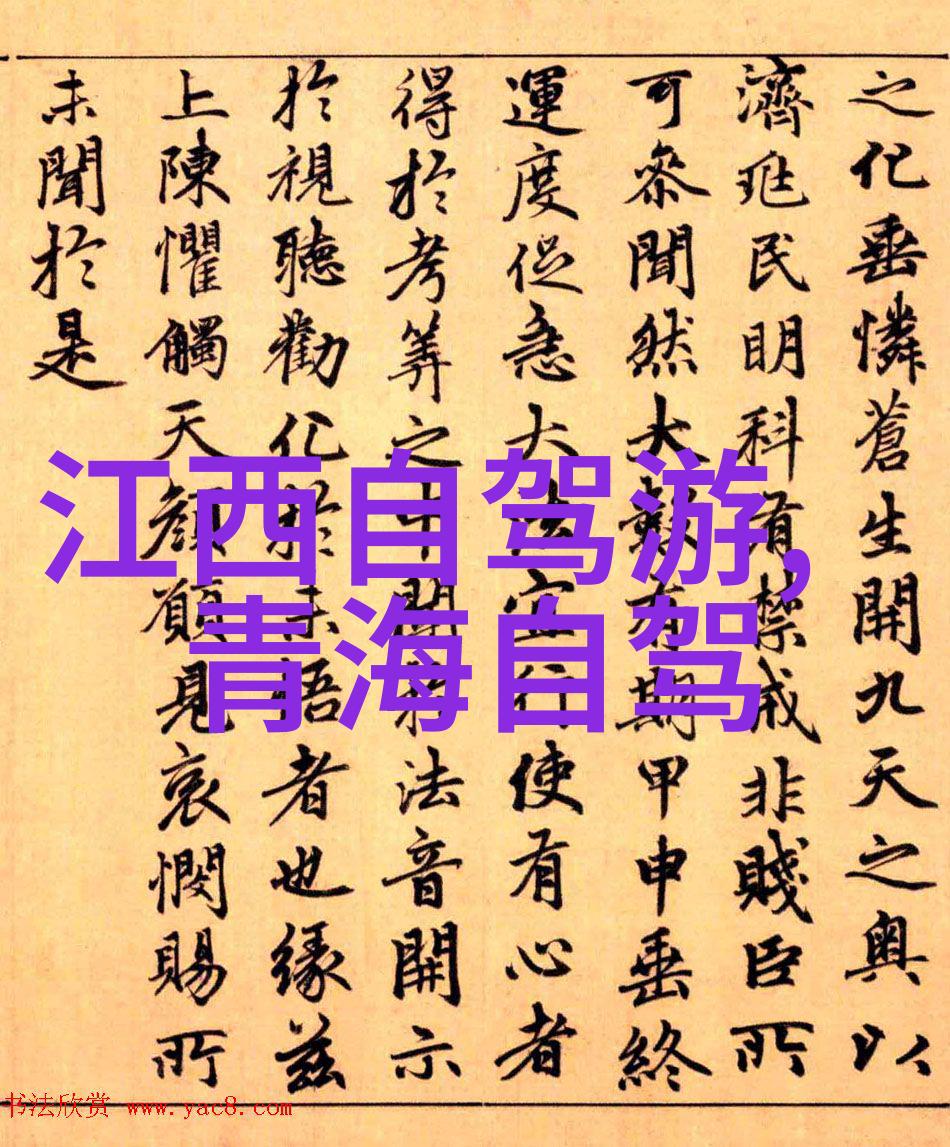 之化垂憐蒼生開九天之奥以
濟兆民明科有禁戒非賤臣所
可参聞然大數有期甲申垂終
運度促急大法宜行使有心者
得於考筭之中開法音開示
於視聽勸化於未悟者也緣兹
上陳懼觸天顔願見哀憫賜所
未聞於是
江西自驾游,
青海自驾
书法欣赏 www.yac8.com